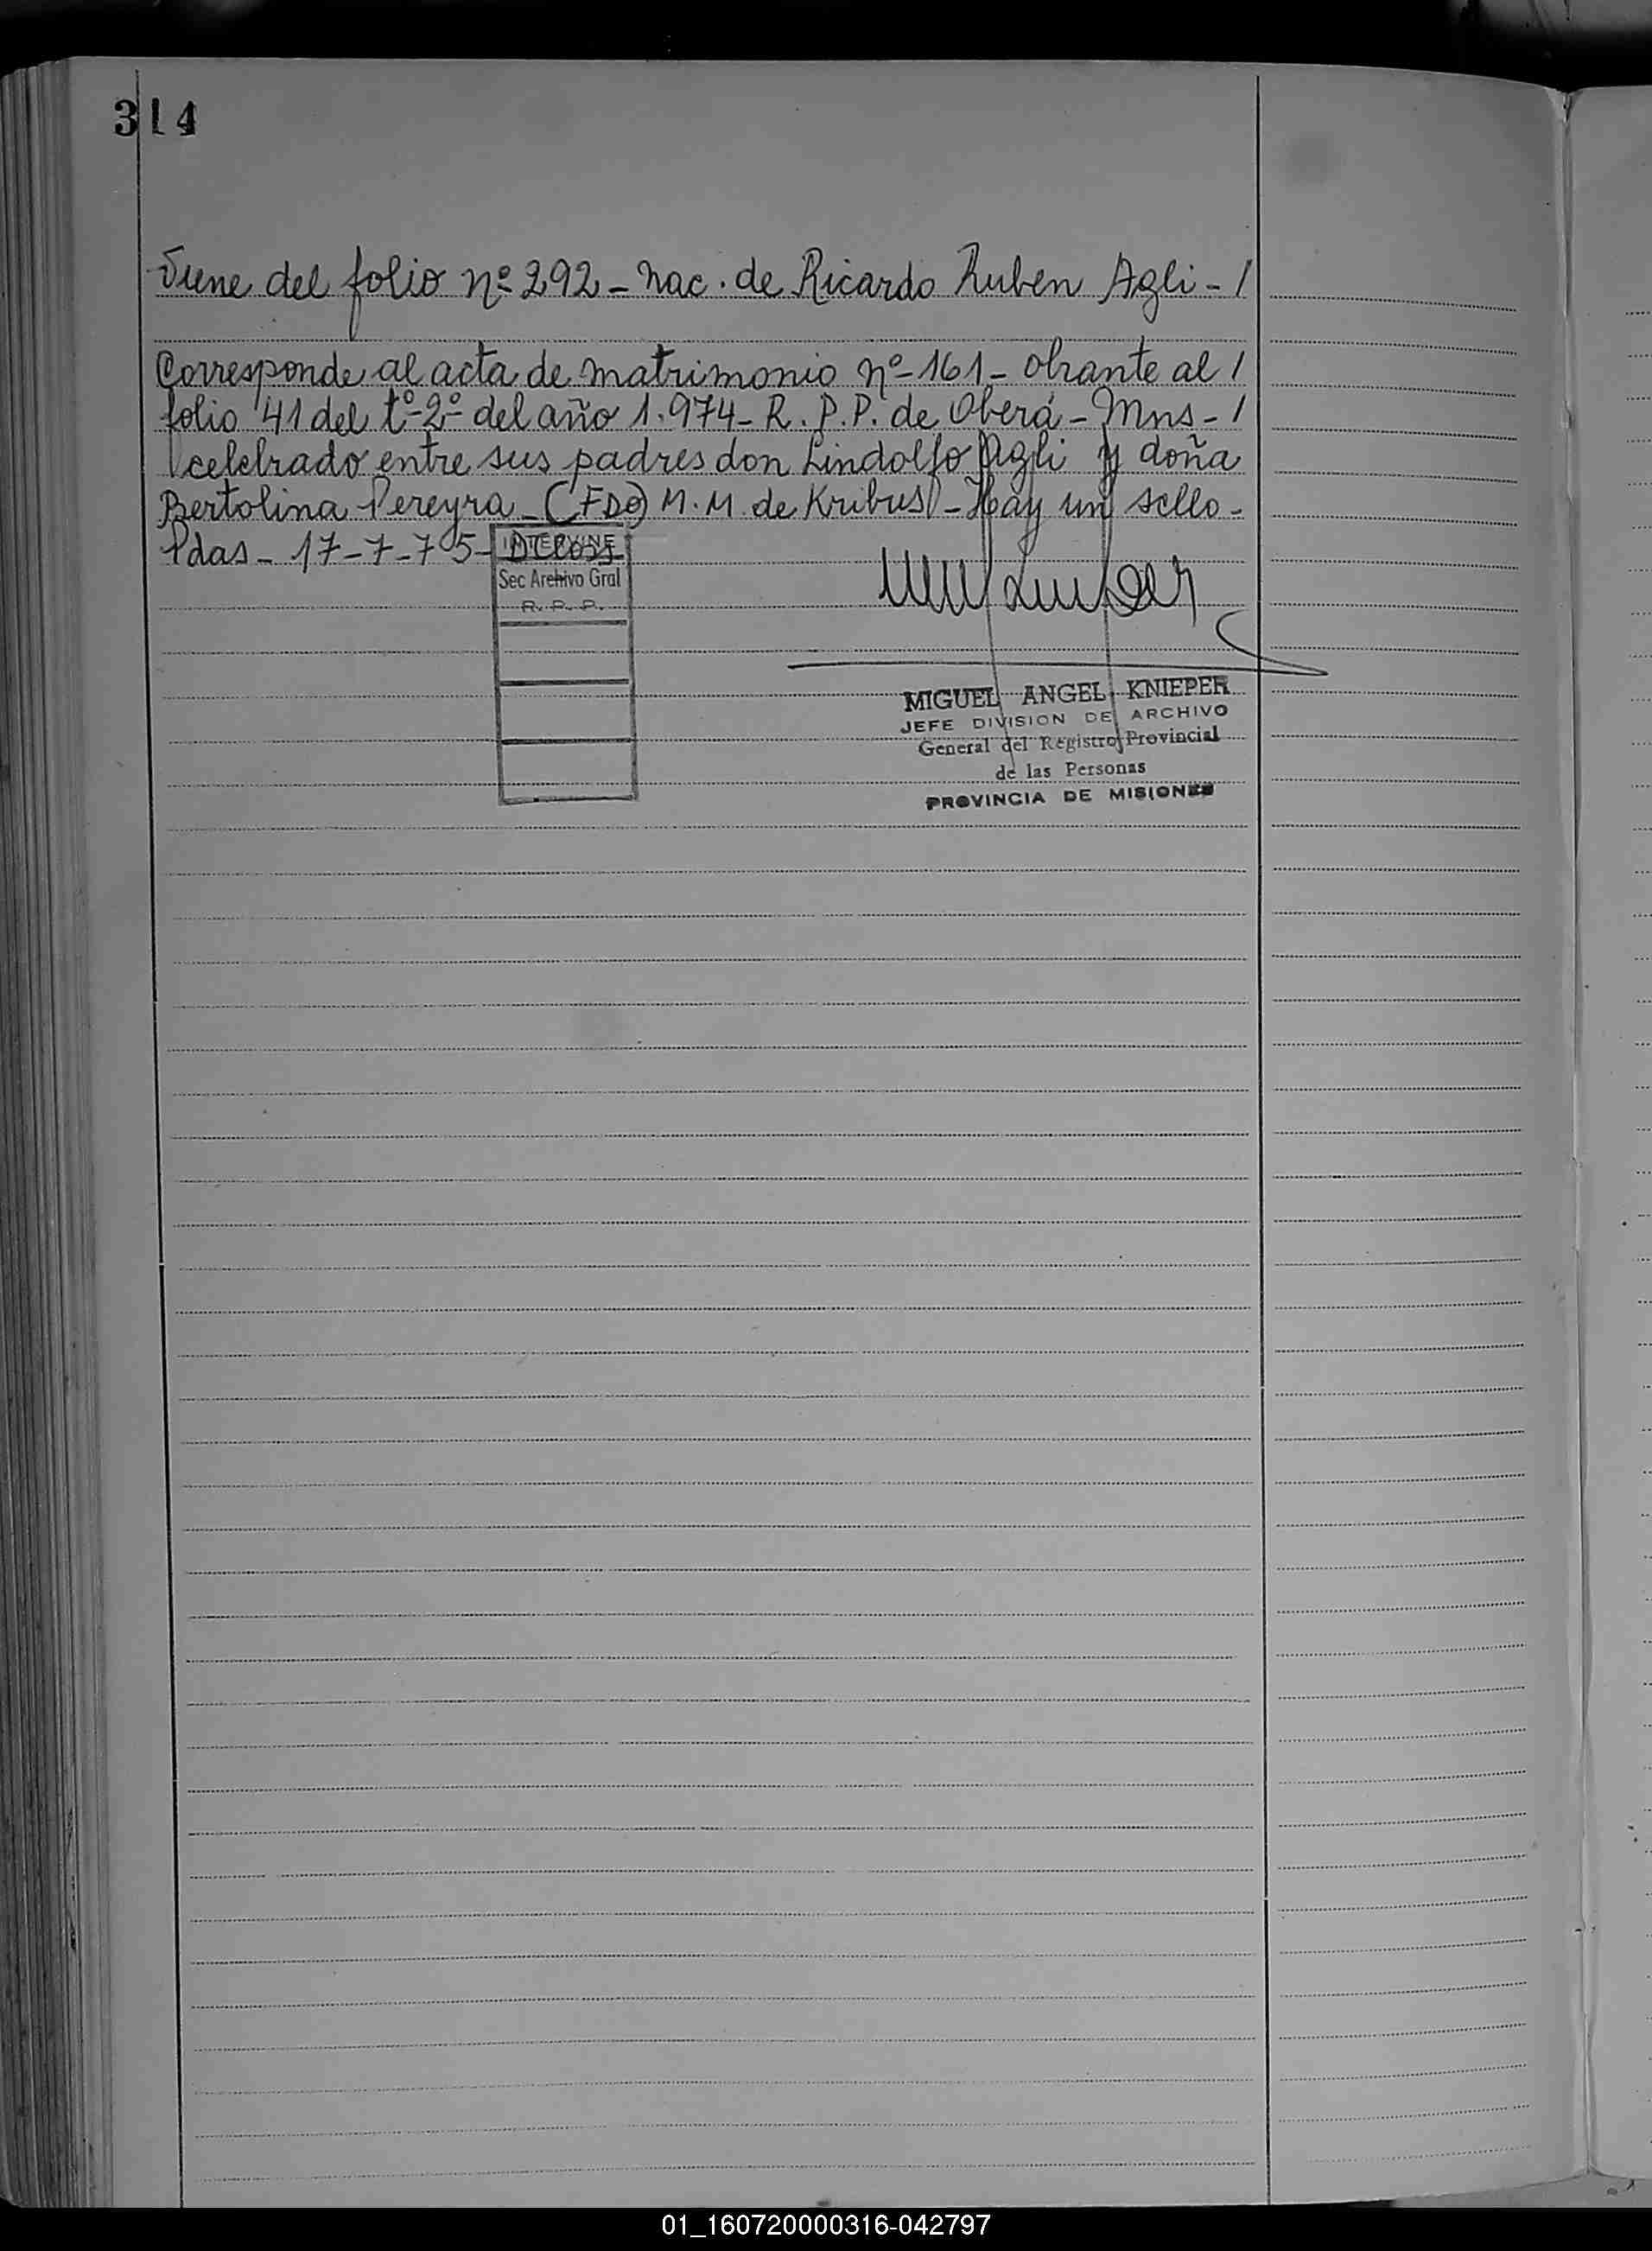 314
Viene del folio nº 292 - Nac. de Ricardo Ruben Agli - /
Corresponde al acta de matrimonio nº - 161 - obrante al /
folio 41 del tº - 2º - del año 1.974 - R. P. P. de Oberá - Mns - /
celebrado entre sus padres don Lindolfo Agli y doña
Bertolina Pereyra - (FDO) M. M. de Kribus) - Hay un sello -
Pdas - 17 - 7 - 75 -
INTERVINE
Sec Archivo Gral
R. P. P.
MIGUEL ANGEL KNIEPER
JEFE DIVISION DE ARCHIVO
General del Registro Provincial
de las Personas
PROVINCIA DE MISIONES
01_160720000316-042797